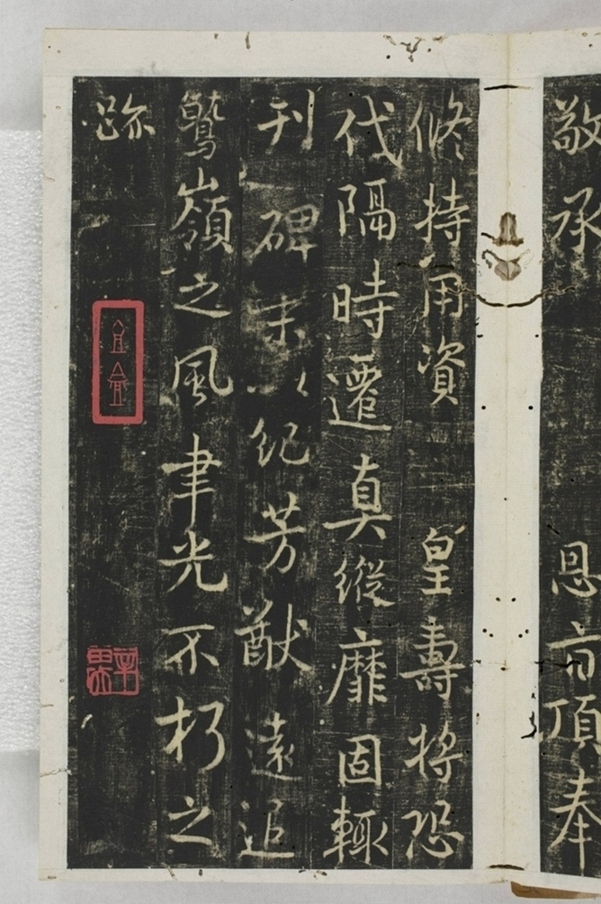 敬承 恩旨頂奉
修持用資 皇壽將恐
代隔時遷真縱靡固輒
刊碑末以紀芳猷遠追
鷲嶺之風聿光不朽之
跡